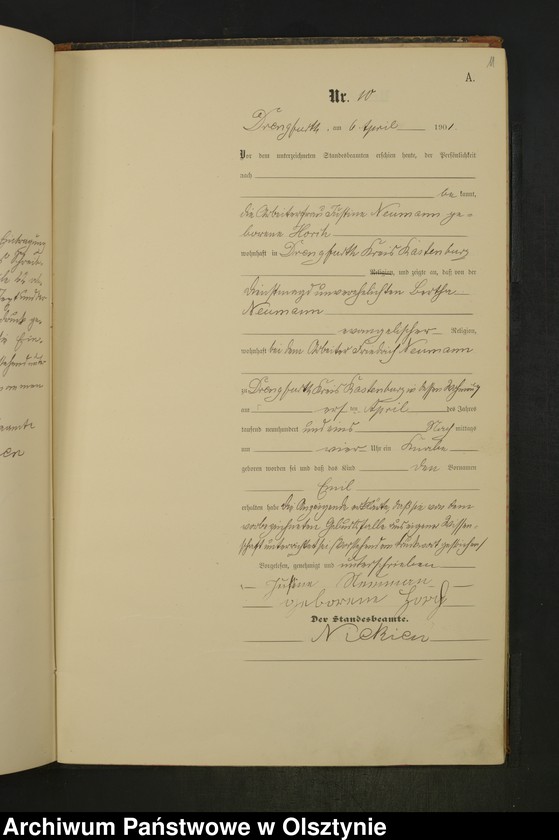 11
A.
Nr. 10
Drengfurth, am 6 April 1901.
Vor dem unterzeichneten Standesbeamten erschien heute, der Persönlichkeit
nach
be kannt,
die Arbeiterfrau Justine Neumann ge-
borene Horch
wohnhaft in Drengfurth Kreis Rastenburg
Religion, und zeigte an, daß von der
Dienstmagd unverehelichten Bertha
Neumann
evangelischer Religion,
wohnhaft bei dem Arbeiter Friedrich Neumann
zu Drengfurth Kreis Rastenburg in dessen Wohnung
am April des Jahres
tausend neunhundert und eins Nach mittags
um vier Uhr ein Knabe
geboren worden sei und daß das Kind den Vornamen
Emil
erhalten habe Die Anzeigende erklärte, daß sie von dem
vorbezeichneten Geburtsfalle aus eigener Wissen-
schaft unterrichtet sei. (Vorstehend ein Druckwort gestrichen)
Vorgelesen, genehmigt und unterschrieben
Justine Neumann
geborene Horch
Der Standesbeamte.
Nickien
Archiwum Państwowe w Olsztynie